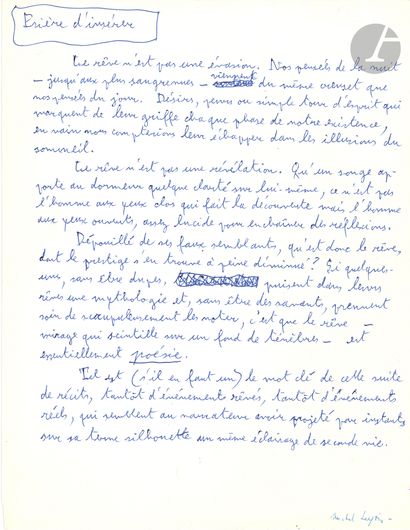 Prière d'insérer
Le rêve n'est pas une évasion. Nos pensées de la nuit
– jusqu'aux plus saugrenues – viennent du même creuset que
nos pensées du jour. Désirs, peurs ou simple tour d'esprit qui
marquent de leur griffe chaque phase de notre existence,
en vain nous compterions leur échapper dans les illusions du
sommeil.
Le rêve n'est pas une révélation. Qu'un songe ap-
porte au dormeur quelque clarté sur lui-même, ce n'est pas
l'homme aux yeux clos qui fait la découverte mais l'homme
aux yeux ouverts, assez lucide pour enchaîner des réflexions.
Dépouillé de ses faux semblants, qu'est donc le rêve,
dont le prestige s'en trouve à peine diminué? Si quelques-
uns, sans être dupes, puisent dans leurs
rêves une mythologie et, sans être des savants, prennent
soin de scrupuleusement les noter, c'est que le rêve –
mirage qui scintille sur un fond de ténèbres – est
essentiellement poésie.
Tel est (s'il en faut un) le mot clé de cette suite
de récits, tantôt d'événements rêvés, tantôt d'événements
réels, qui semblent au narrateur avoir projeté par instants
sur sa terne silhouette un même éclairage de seconde vie.
Michel Leiris –